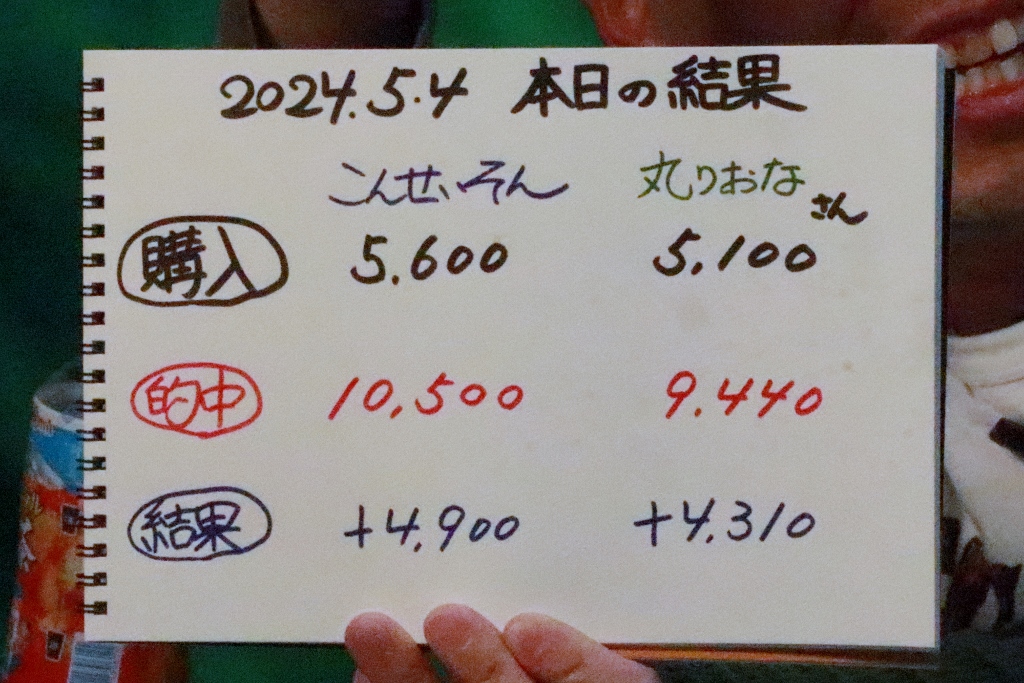 2024.5.4 本日の結果
こんせいそん 丸りおな さん
購入 5.600 5.100
的中 10,500 9.440
結果 +4.900 +4.310